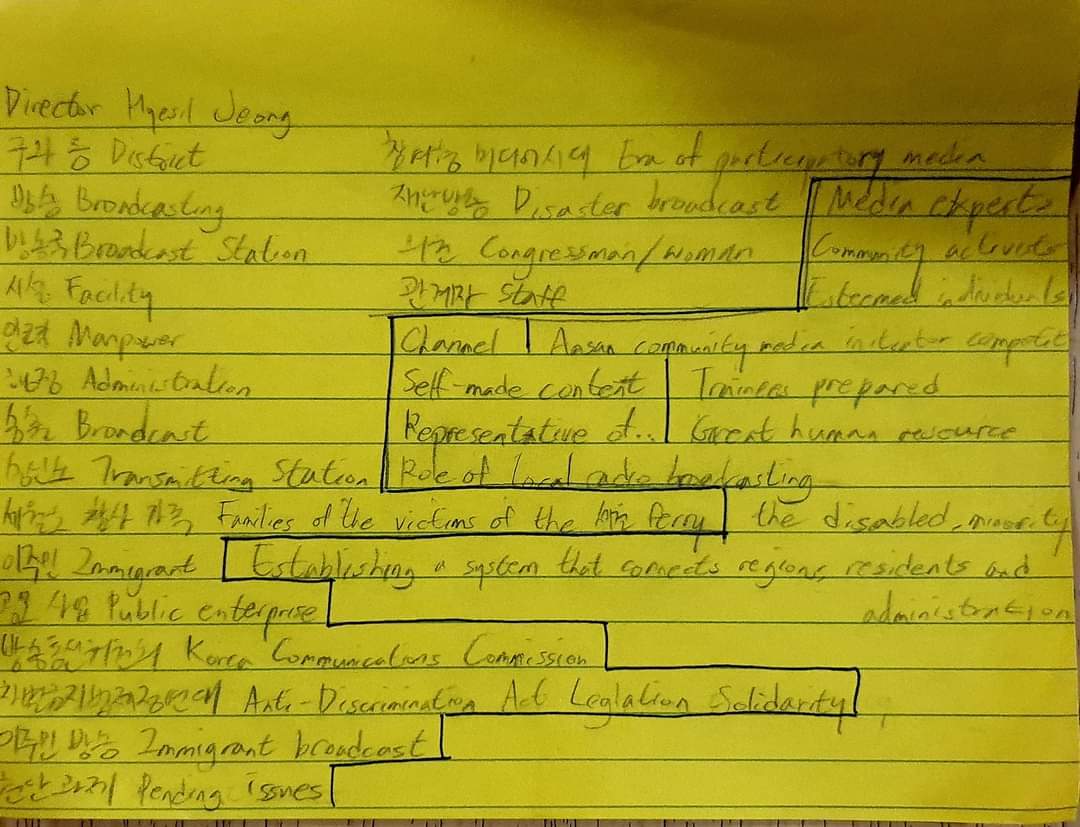 Director Hyesil Jeong
District 참여형 미디어시대 Era of participatory media
방송 Broadcasting 재난방송 Disaster broadcast Media experts
방송국 Broadcast Station 의원 Congressman/woman Community activists
시설 Facility 관계자 Staff Esteemed individuals
인력 Manpower Channel Ansan community media
행정 Administration Self-made content Trainees prepared
송출 Broadcast Representative of.. Great human resource
Transmitting Station Role of local radio broadcasting
세월호 가족 Families of the victims of the ferry the disabled, minority
이주민 Immigrant Establishing a system that connects regions, residents and
사업 Public enterprise administration
방송통신위원회 Korea Communications Commission
차별금지법제정연대 Anti-Discrimination Act Leglation Solidarity
이주민 방송 Immigrant broadcast
현안과제 Pending issues